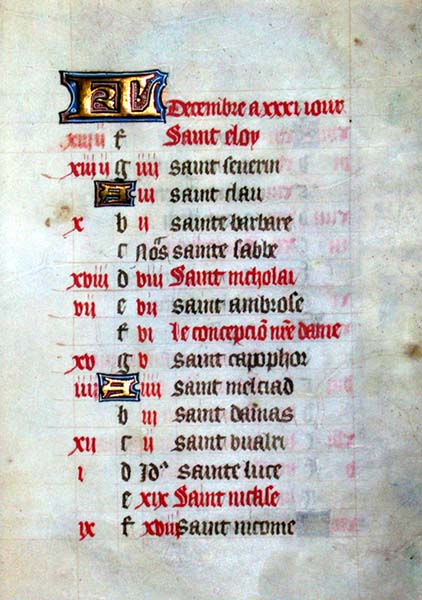 KL Decembre a xxxi iour
xiii f Saint eloy
g iiii saint severin
A iii saint clau
x b ii sainte barbare
c Nōs sainte sabbe
xviii d viii Saint nicholai
vii e vii saint ambrose
f vi le concepciō nr̄e dame
xv g v saint capophor
iiii A iiii saint melciad
b iii saint damas
xii c ii saint
i d Idᵃ sainte luce
e xix Saint nichse
ix f xviii saint nicome